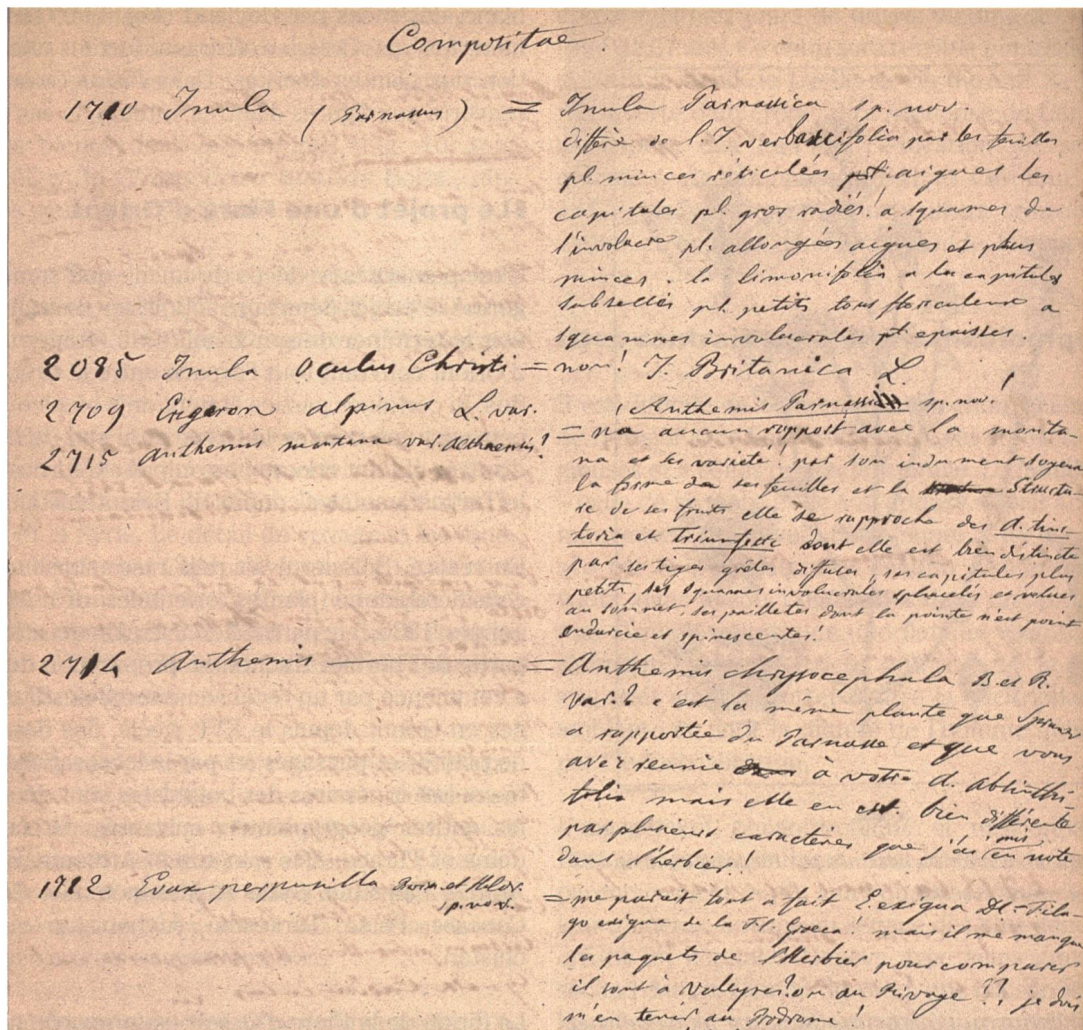 Compositae.
1710 Inula (Parnassus) = Inula Parnassica sp. nov.
diffère de l. I. verbascifolia par les feuilles
pl. minces réticulées pl. aigues les
capitules pl. gros radiés! a squames de
l'involucre pl. allongées aigues et plus
minces. la limonifolia a les capitules
subsessiles pl. petits tous flosculeux a
squammes involucrales pl. epaisses
2085 Inula Oculus Christi = non! I. Britanica L.
2709 Erigeron alpinus L. var.
! Anthemis Parnassica sp. nov!
2715 Anthemis montana var. = n'a aucun rapport avec la monta-
na et ses varieté! par son indument soyeux
la forme de ses feuilles et la Structu-
re de ses fruits elle se rapproche des A. tinc-
toria et Triumfetti dont elle est bien distincte
par ses tiges grêles diffuses, ses capitules plus
petits, ses squames involucrales sphacelés et
au sommet, ses paillettes dont la pointe n'est point
endurcie et spinescentes!
2714 Anthemis ——— = Anthemis chrysocephala B. et R.
var.? c'est la même plante que Spruner
a rapportée du Parnasse et que vous
avez reunie à votre A. absinthi-
folia mais elle en est bien différente
par plusieurs caractères que j'ai mis en note
dans l'herbier!
1712 Evax perpusilla Boiss. et Heldr. sp. nov. = me parait tout a fait E. exigua DC = Fila-
go exigua de la Fl. Graeca! mais il me manque
les paquets de l'Herbier pour comparer
ils sont à Valeyres? ou au Rivage?! je dois
m'en tenir au Prodrome!